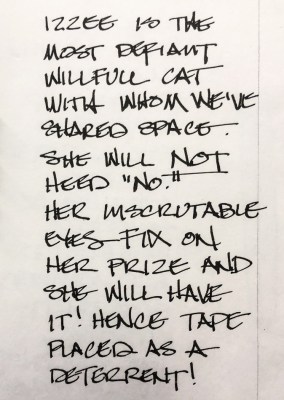 IZZEE IS THE
MOST DEFIANT
WILLFULL CAT
WITH WHOM WE'VE
SHARED SPACE.
SHE WILL NOT
HEED "NO."
HER INSCRUTABLE
EYES FIX ON
HER PRIZE AND
SHE WILL HAVE
IT! HENCE TAPE
PLACED AS A
DETERRENT!